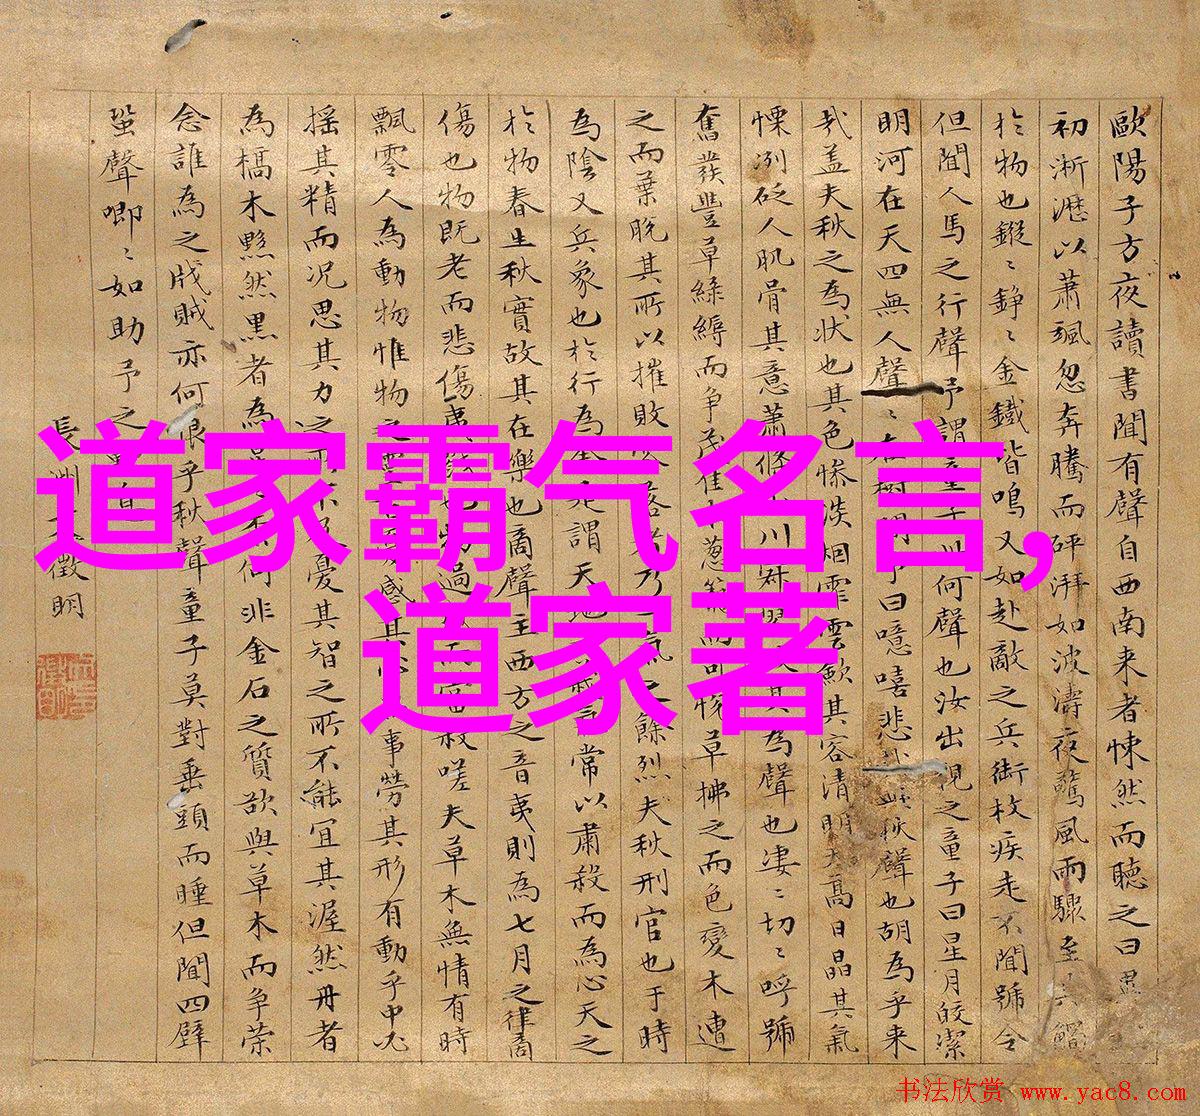 歐陽子方夜讀書聞有聲自西南来者悚然而聽之曰
初淅瀝以蕭颯忽奔騰而砰湃如波濤夜驚風雨驟至其觸
於物也鏦〻錚〻金鐵皆鳴又如赴敵之兵銜枚疾走不聞號令
但聞人馬之行聲予謂童子此何聲也汝出視之童子曰星月皎潔
明河在天四無人聲〻在樹間予曰噫嘻悲秋聲也胡為乎来
哉盖夫秋之為狀也其色惨淡烟霏雲歛其容清明天高日晶其氣
慄冽砭人肌骨其意蕭條山川寂其為聲也凄〻切〻呼號
奮發豐草綠縟而争茂佳木葱而可悅草拂之而色變木遭
之而葉脫其所以摧敗落者乃氣之餘烈夫秋刑官也于時
為陰又兵象也於行為金是謂天地常以肅殺而為心天之
於物春生秋實故其在樂也商聲主西方之音夷則為七月之律商
傷也物既老而悲傷夷也物過當殺嗟夫草木無情有時
飄零人為動物惟物之感其事勞其形有動乎中必
搖其精而况思其力之不及憂其智之所不能宜其渥然丹者
為槁木黟然黑者為何非金石之質欲與草木而争荣
念誰為之戕賊亦何恨乎秋聲童子莫對垂頭而睡但聞四壁
蛩聲唧〻如助予之息
長洲文徵明
道家霸气名言,
道家著
书法欣赏 www.yac8.com